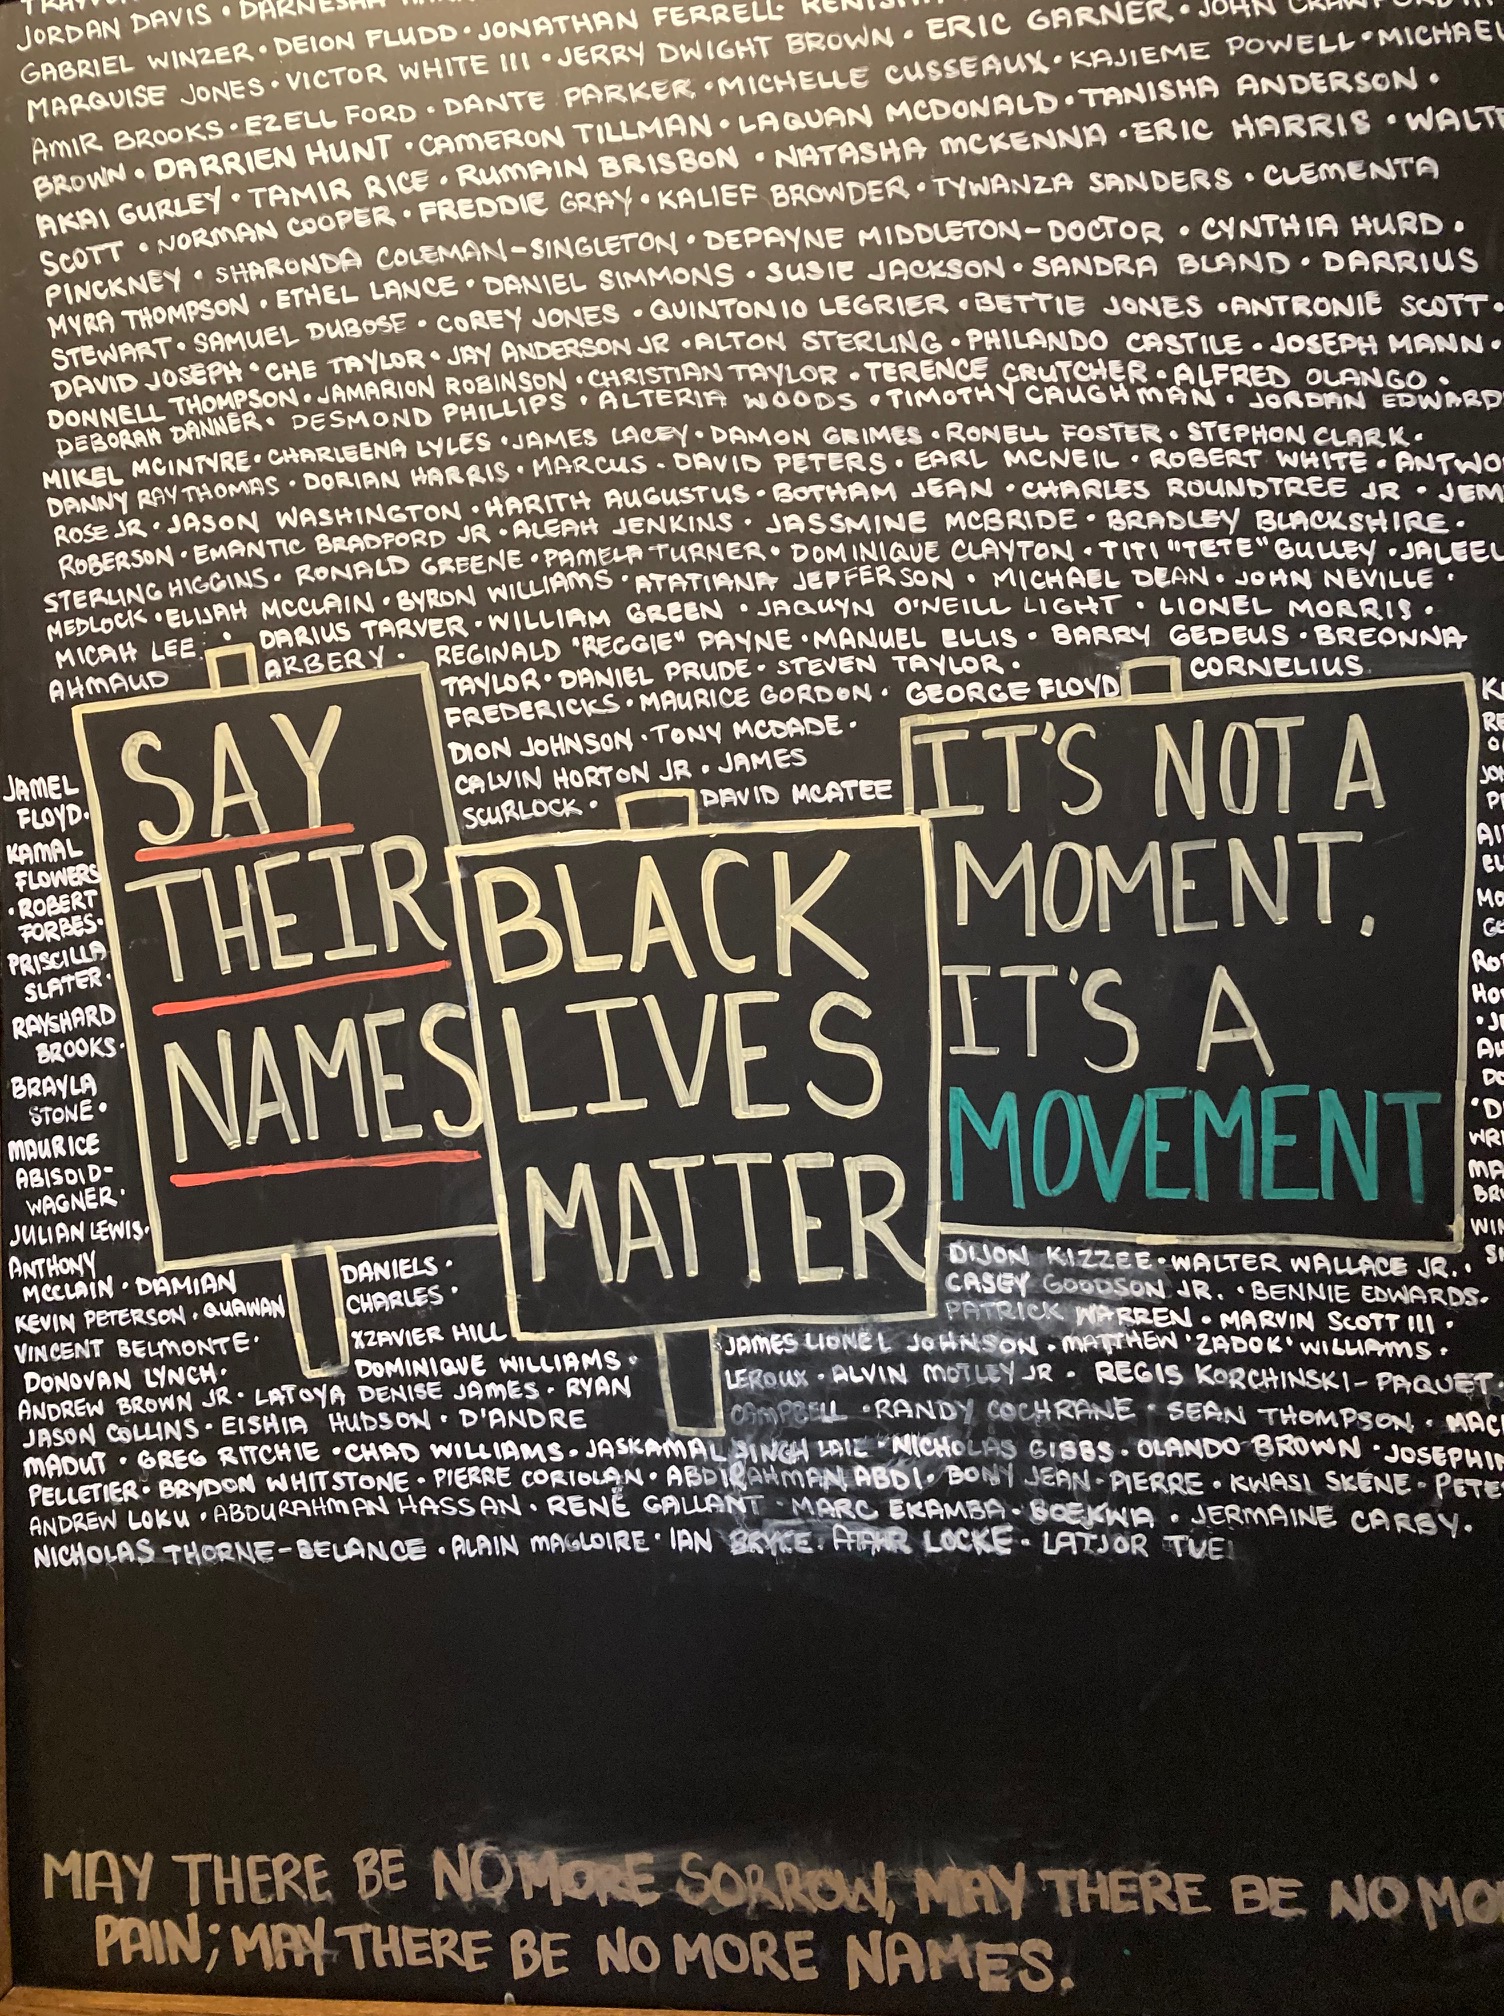 JORDAN DAVIS · DARNESHA
GABRIEL WINZER · DEION FLUDD · JONATHAN FERRELL ·
MARQUISE JONES · VICTOR WHITE III · JERRY DWIGHT BROWN · ERIC GARNER · JOHN
AMIR BROOKS · EZELL FORD · DANTE PARKER · MICHELLE CUSSEAUX · KAJIEME POWELL · MICHAEL
BROWN · DARRIEN HUNT · CAMERON TILLMAN · LAQUAN MCDONALD · TANISHA ANDERSON ·
AKAI GURLEY · TAMIR RICE · RUMAIN BRISBON · NATASHA MCKENNA · ERIC HARRIS ·
SCOTT · NORMAN COOPER · FREDDIE GRAY · KALIEF BROWDER · TYWANZA SANDERS · CLEMENTA
PINCKNEY · SHARONDA COLEMAN-SINGLETON · DEPAYNE MIDDLETON-DOCTOR · CYNTHIA HURD ·
MYRA THOMPSON · ETHEL LANCE · DANIEL SIMMONS · SUSIE JACKSON · SANDRA BLAND · DARRIUS
STEWART · SAMUEL DUBOSE · COREY JONES · QUINTONIO LEGRIER · BETTIE JONES · ANTRONIE SCOTT ·
DAVID JOSEPH · CHE TAYLOR · JAY ANDERSON JR · ALTON STERLING · PHILANDO CASTILE · JOSEPH MANN ·
DONNELL THOMPSON · JAMARION ROBINSON · CHRISTIAN TAYLOR · TERENCE CRUTCHER · ALFRED OLANGO ·
DEBORAH DANNER · DESMOND PHILLIPS · ALTERIA WOODS · TIMOTHY CAUGHMAN · JORDAN EDWARD
MIKEL MCINTYRE · CHARLEENA LYLES · JAMES LACEY · DAMON GRIMES · RONELL FOSTER · STEPHON CLARK ·
DANNY RAY THOMAS · DORIAN HARRIS · MARCUS - DAVID PETERS · EARL MCNEIL · ROBERT WHITE · ANTWO
ROSE JR · JASON WASHINGTON · HARITH AUGUSTUS · BOTHAM JEAN · CHARLES ROUNDTREE JR · JEM
ROBERSON · EMANTIC BRADFORD JR · ALEAH JENKINS · JASSMINE MCBRIDE · BRADLEY BLACKSHIRE ·
STERLING HIGGINS · RONALD GREENE · PAMELA TURNER · DOMINIQUE CLAYTON · TITI "TETE" GULLEY · JALEEL
MEDLOCK · ELIJAH MCCLAIN · BYRON WILLIAMS · ATATIANA JEFFERSON · MICHAEL DEAN · JOHN NEVILLE ·
MICAH LEE · DARIUS TARVER · WILLIAM GREEN · JAQUYN O'NEILL LIGHT · LIONEL MORRIS ·
AHMAUD ARBERY · REGINALD "REGGIE" PAYNE · MANUEL ELLIS · BARRY GEDEUS · BREONNA
TAYLOR · DANIEL PRUDE · STEVEN TAYLOR · CORNELIUS
FREDERICKS · MAURICE GORDON · GEORGE FLOYD
DION JOHNSON · TONY MCDADE ·
CALVIN HORTON JR · JAMES
SCURLOCK · DAVID MCATEE
JAMEL
FLOYD ·
KAMAL
FLOWERS
· ROBERT
FORBES ·
PRISCILLA
SLATER ·
RAYSHARD
BROOKS ·
BRAYLA
STONE ·
MAURICE
ABISDID-
WAGNER ·
JULIAN LEWIS ·
ANTHONY
MCCLAIN · DAMIAN DANIELS ·
KEVIN PETERSON · QUAWAN CHARLES ·
VINCENT BELMONTE · XZAVIER HILL
DONOVAN LYNCH · DOMINIQUE WILLIAMS ·
SAY
THEIR
NAMES
BLACK
LIVES
MATTER
IT'S NOT A
MOMENT.
IT'S A
MOVEMENT
DIJON KIZZEE · WALTER WALLACE JR. ·
CASEY GOODSON JR. · BENNIE EDWARDS ·
PATRICK WARREN · MARVIN SCOTT III ·
JAMES LIONEL JOHNSON · MATTHEW 'ZADOK' WILLIAMS ·
ANDREW BROWN JR · LATOYA DENISE JAMES · RYAN LEROUX · ALVIN MOTLEY JR · REGIS KORCHINSKI-PAQUET ·
JASON COLLINS · EISHIA HUDSON · D'ANDRE CAMPBELL · RANDY COCHRANE · SEAN THOMPSON · MAC
MADUT · GREG RITCHIE · CHAD WILLIAMS · JASKAMAL SINGH LAIL · NICHOLAS GIBBS · OLANDO BROWN · JOSEPHIN
PELLETIER · BRYDON WHITSTONE · PIERRE CORIOLAN · ABDIRAHMAN ABDI · BONY JEAN-PIERRE · KWASI SKENE · PETE
ANDREW LOKU · ABDURAHMAN HASSAN · RENÉ GALLANT · MARC EKAMBA · BOEKWA · JERMAINE CARBY ·
NICHOLAS THORNE-BELANCE · ALAIN MAGLOIRE · IAN BRYCE · LOCKE · LATJOR TUEL
MAY THERE BE NO MORE SORROW, MAY THERE BE NO MO
PAIN; MAY THERE BE NO MORE NAMES.